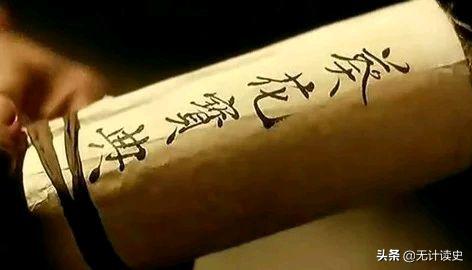 葵花寶典
头条 @无计读史